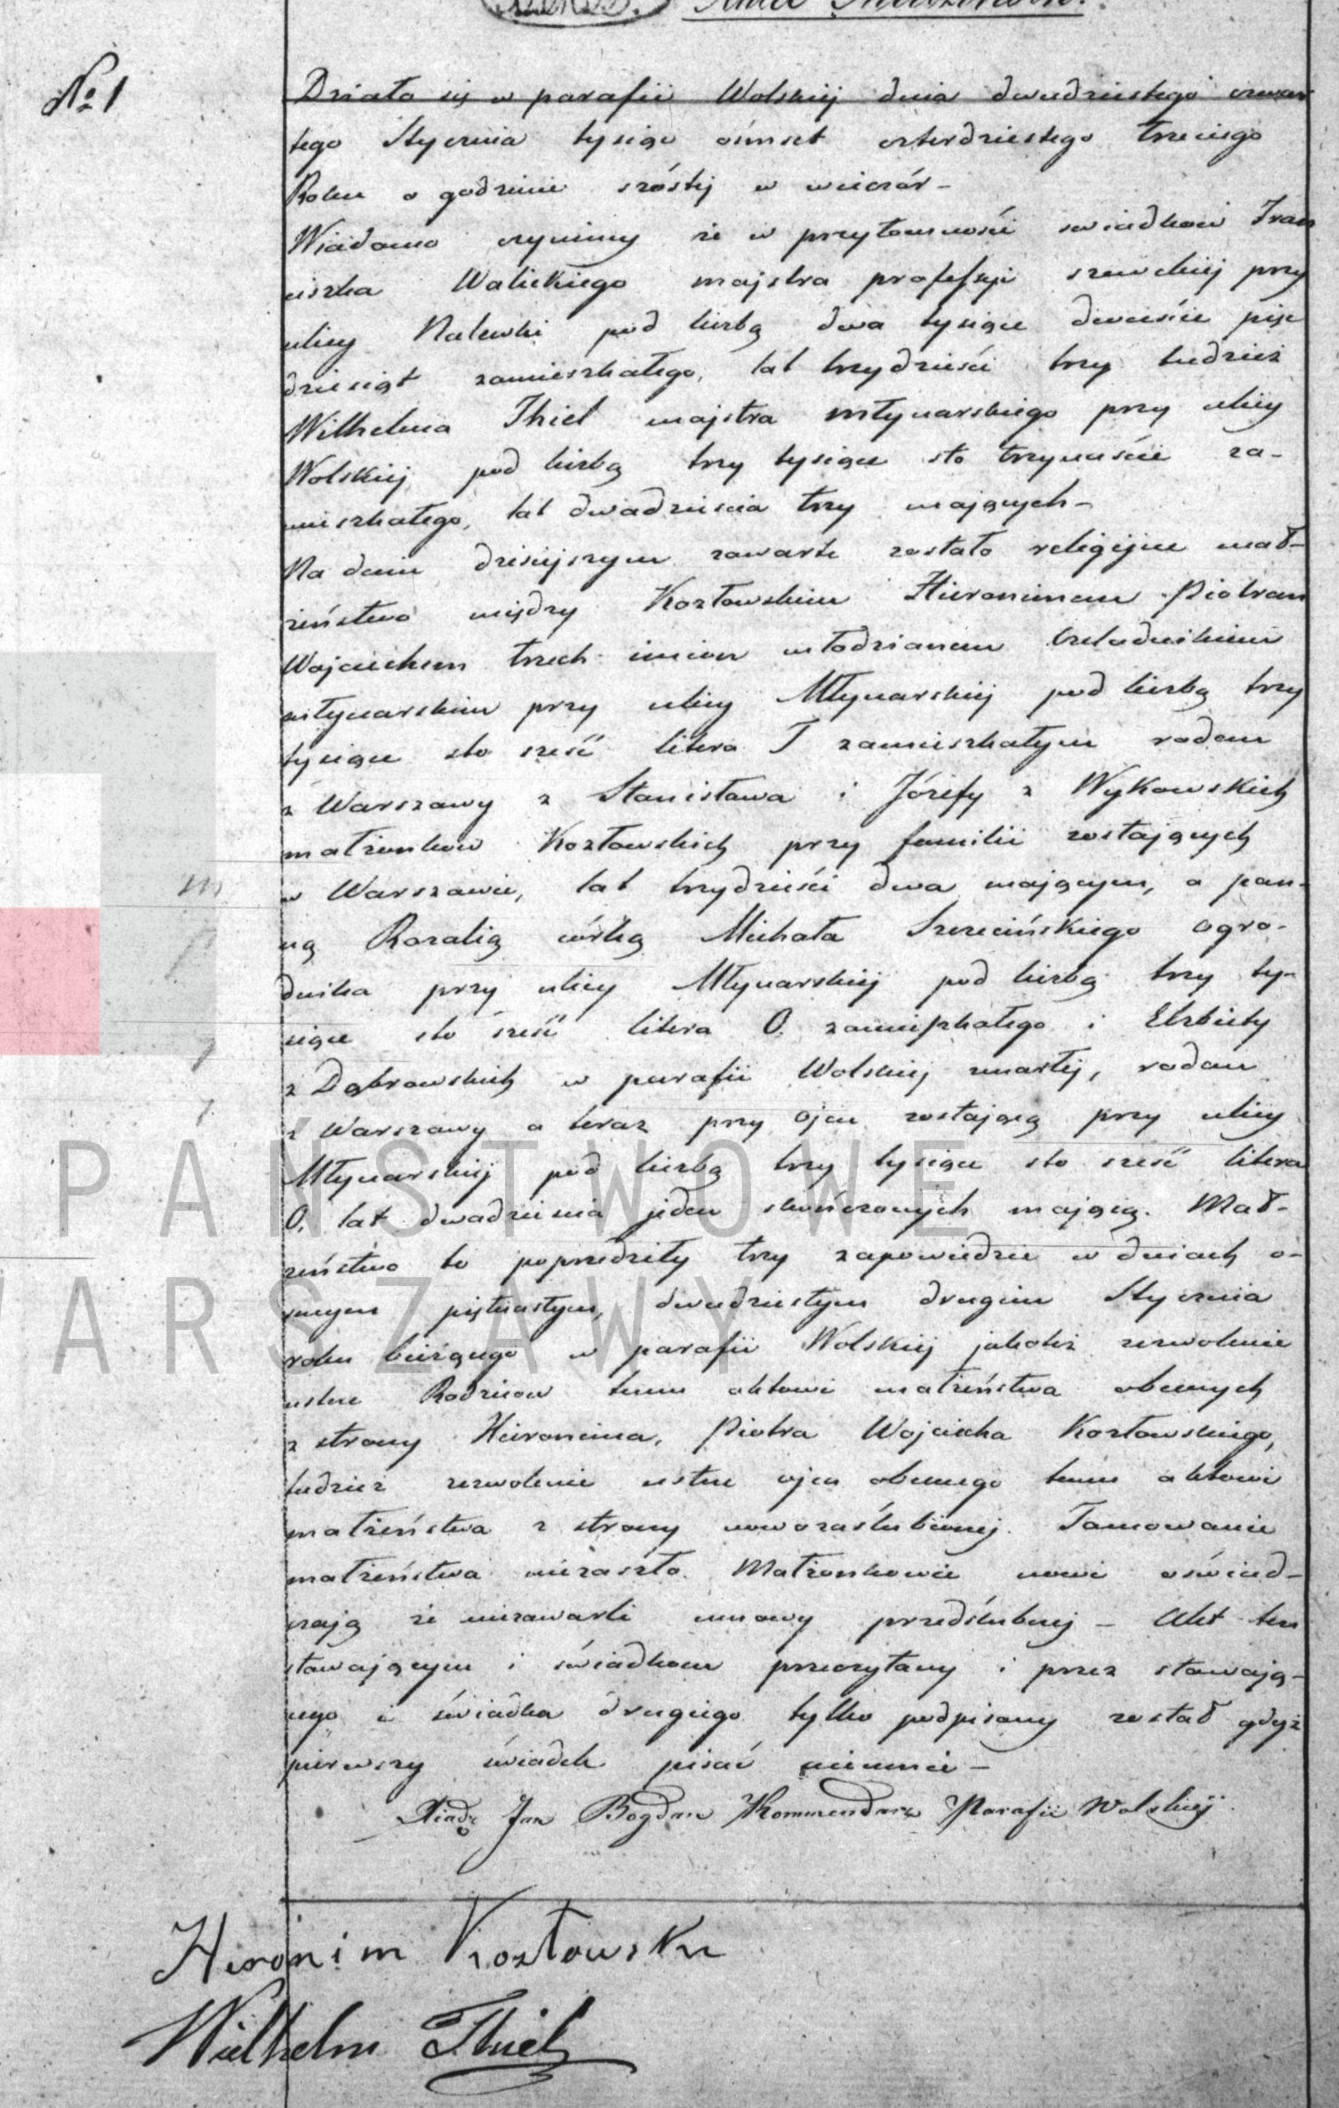 No 1
Działo się w parafii Wolskiej dnia dwudziestego czwar
tego Stycznia tysiąc ośmset czterdziestego trzeciego
Roku o godzinie szóstej w wieczór –
Wiadomo czynimy że w przytomności swiadków Fran
ciszka Walickiego majstra professyi szewckiej przy
ulicy Nalewki pod liczbą dwa tysiące dwieście pięć
dziesiąt zamieszkałego, lat trzydzieści trzy tudzież
Wilhelma Thiel majstra młynarskiego przy ulicy
Wolskiej pod liczbą trzy tysiące sto trzynaście za–
mieszkałego, lat dwadzieścia trzy mających –
Na dniu dzisiejszym zawarte zostało religijne mał–
żeństwo między Kozłowskim Hieronimem Piotrem
Wojciechem trzech imion młodzianem czeladnikiem
młynarskim przy ulicy Młynarskiej pod liczbą trzy
tysiące sto sześć litera T zamieszkałym rodem
z Warszawy z Stanisława i Józefy z Wykowskich
małżonków Kozłowskich przy familii zostających
w Warszawie, lat trzydzieści dwa mającym, a pan–
ną Rozalią córką Michała Szczecińskiego ogro–
dnika przy ulicy Młynarskiej pod liczbą trzy ty–
siące sto sześć litera O. zamieszkałego i Elżbiety
z Dąbrowskich w parafii Wolskiej zmarłej, rodem
z Warszawy a teraz przy ojcu zostającą przy ulicy
Młynarskiej pod liczbą trzy tysiące sto sześć litera
O. lat dwadzieścia jeden skończonych mającą. Mał–
żeństwo to poprzedziły trzy zapowiedzie w dniach o–
smym piętnastym, dwudziestym drugim Stycznia
roku bieżącego w parafii Wolskiej jakoteż zezwolenie
ustne Rodziców temu aktowi małżeństwa obecnych
z strony Hieronima, Piotra Wojciecha Kozłowskiego,
tudzież zezwolenie ustne ojca obecnego temu aktowi
małżeństwa z strony nowozaślubionej. Tamowanie
małżeństwa niezaszło. Małżonkowie nowi oświad–
czają że niezawarli umowy przedślubnej – Akt ten
stawającym i świadkom przeczytany i przez stawają–
cego i świadka drugiego tylko podpisany został gdyż
pierwszy świadek pisać nieumie –
Xiądz Jan Bogdan Kommendarz Parafii Wolskiej
Hieronim Kozłowski
Wilhelm Thiel
PAŃSTWOWE
WARSZAWY